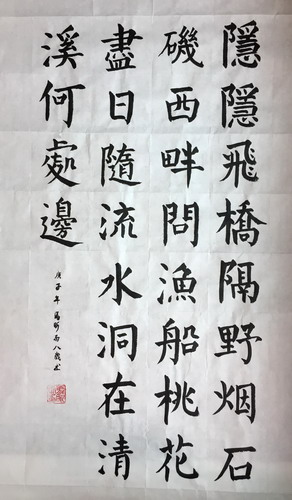 隱隱飛橋隔野烟石
磯西畔問漁船桃花
盡日隨流水洞在清
溪何處邊
庚子年